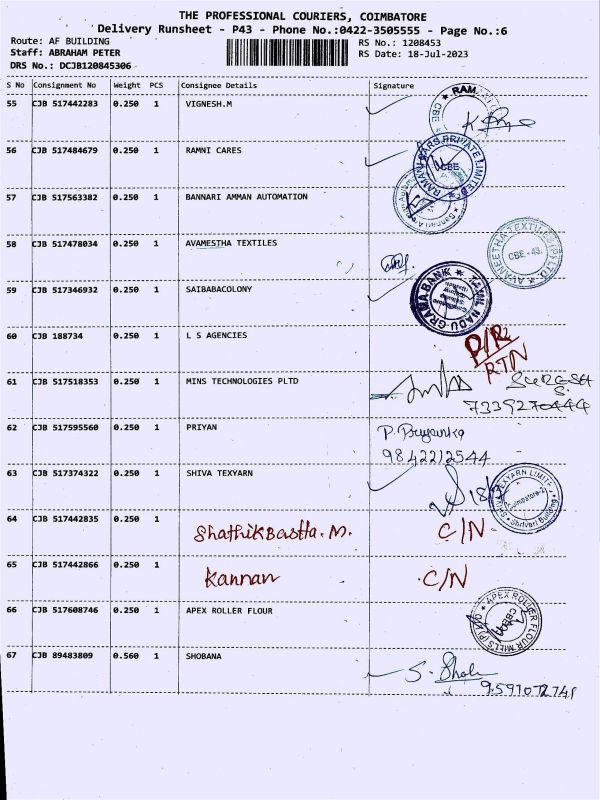 THE PROFESSIONAL COURIERS, COIMBATORE
Delivery Runsheet - P43 - Phone No.:0422-3505555 - Page No.:6
Route: AF BUILDING
RS No.: 1208453
Staff: ABRAHAM PETER
RS Date: 18-Jul-2023
DRS No.: DCJB120845306
S No Consignment No Weight PCS Consignee Details Signature
55 CJB 517442283 0.250 1 VIGNESH.M
CBE
56 CJB 517484679 0.250 1 RAMNI CARES
PRIVATE LIMITED
CBE
57 CJB 517563382 0.250 1 BANNARI AMMAN AUTOMATION
58 CJB 517478034 0.250 1 AVAMESTHA TEXTILES
AVANEETHA TEXTILE (P) LTD
CBE-43.
59 CJB 517346932 0.250 1 SAIBABACOLONY
TAMIL NADU GRAMA BANK
60 CJB 188734 0.250 1 L S AGENCIES
RTN
61 CJB 517518353 0.250 1 MINS TECHNOLOGIES PLTD
SURESH
S.
7339270444
62 CJB 517595560 0.250 1 PRIYAN
P. Priyanka
9842212544
63 CJB 517374322 0.250 1 SHIVA TEXYARN
18/7
SHIVA TEXYARN LIMITED
Coimbatore-2
Shrivari Building
64 CJB 517442835 0.250 1
ShathikBastha.M. C/N
65 CJB 517442866 0.250 1
Kannan C/N
66 CJB 517608746 0.250 1 APEX ROLLER FLOUR
APEX ROLLER FLOUR MILLS (P)
67 CJB 89483809 0.560 1 SHOBANA
9591072741